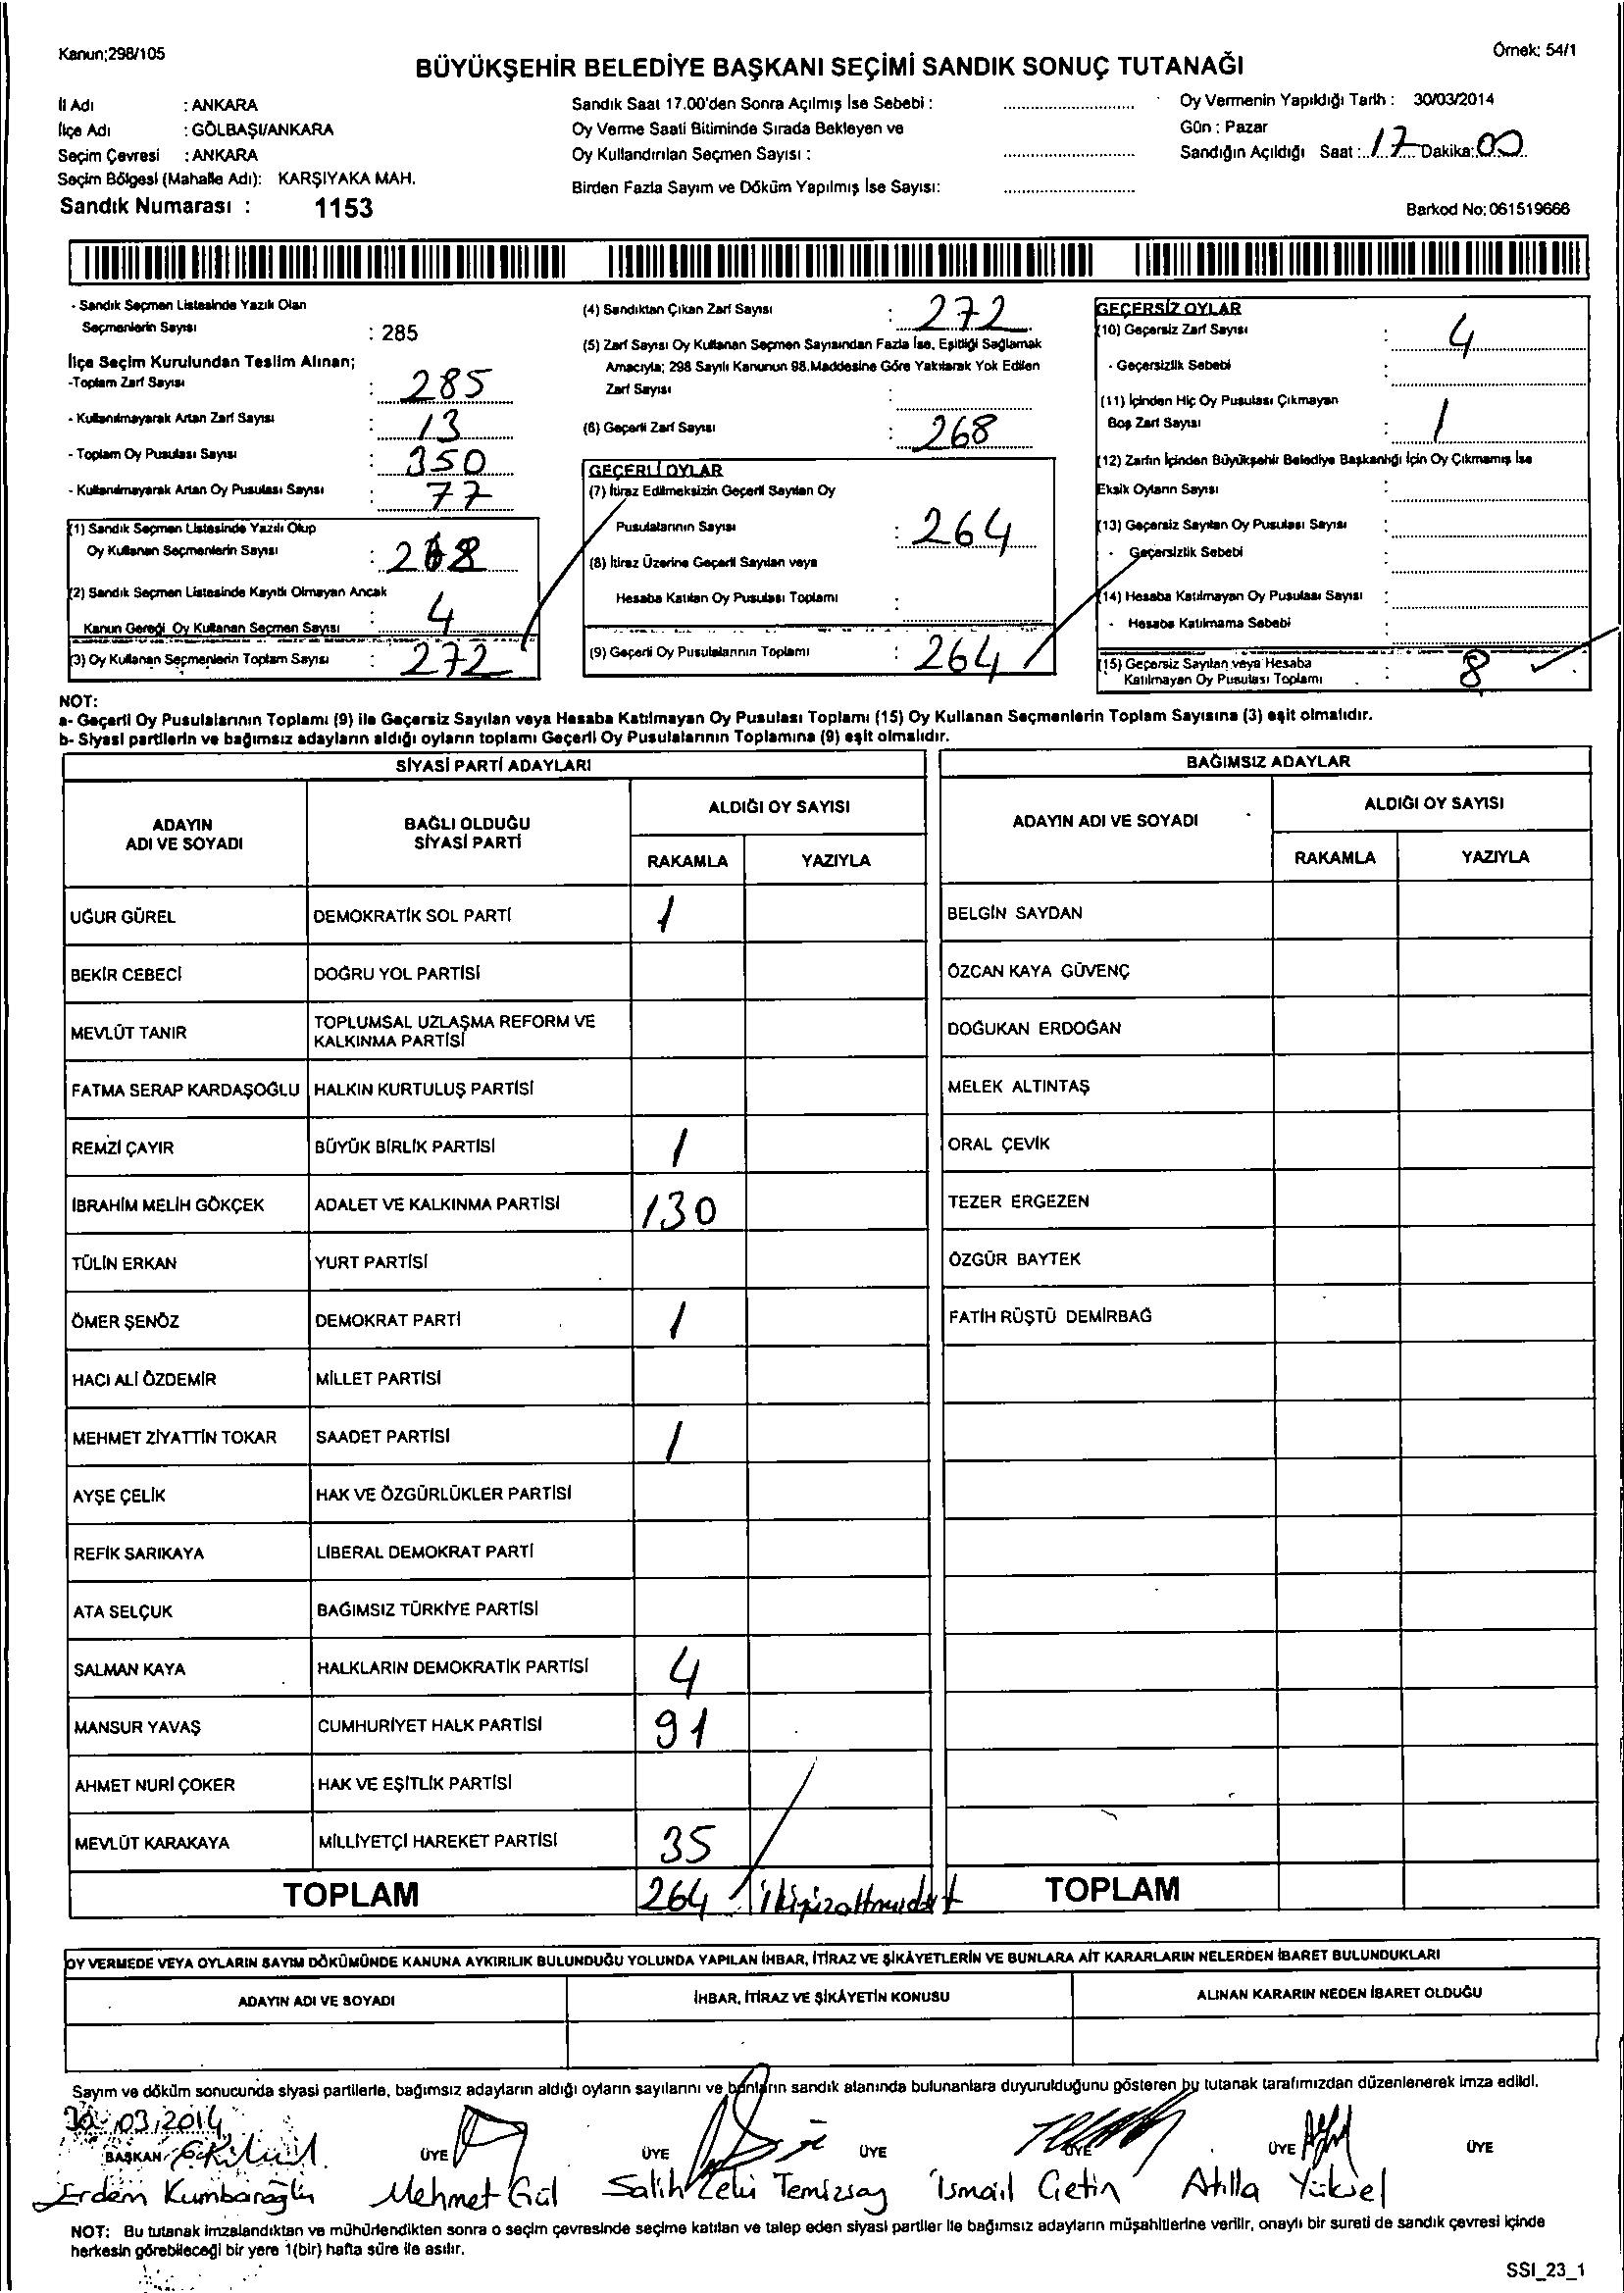 Kanun;298/105
Örnek: 54/1
BÜYÜKŞEHİR BELEDİYE BAŞKANI SEÇİMİ SANDIK SONUÇ TUTANAĞI
İl Adı : ANKARA
İlçe Adı : GÖLBAŞI/ANKARA
Seçim Çevresi : ANKARA
Seçim Bölgesi (Mahalle Adı): KARŞIYAKA MAH.
Sandık Numarası : 1153
Sandık Saat 17.00'den Sonra Açılmış İse Sebebi :
Oy Verme Saati Bitiminde Sırada Bekleyen ve
Oy Kullandırılan Seçmen Sayısı :
Birden Fazla Sayım ve Döküm Yapılmış İse Sayısı:
Oy Vermenin Yapıldığı Tarih : 30/03/2014
Gün : Pazar
Sandığın Açıldığı Saat : 17 Dakika: 00
Barkod No: 061519666
- Sandık Seçmen Listesinde Yazılı Olan
Seçmenlerin Sayısı : 285
İlçe Seçim Kurulundan Teslim Alınan;
-Toplam Zarf Sayısı : 285
- Kullanılmayarak Artan Zarf Sayısı : 13
- Toplam Oy Pusulası Sayısı : 350
- Kullanılmayarak Artan Oy Pusulası Sayısı : 77
(1) Sandık Seçmen Listesinde Yazılı Olup
Oy Kullanan Seçmenlerin Sayısı : 268
(2) Sandık Seçmen Listesinde Kayıtlı Olmayan Ancak
Kanun Gereği Oy Kullanan Seçmen Sayısı : 4
(3) Oy Kullanan Seçmenlerin Toplam Sayısı : 272
(4) Sandıktan Çıkan Zarf Sayısı : 272
(5) Zarf Sayısı Oy Kullanan Seçmen Sayısından Fazla İse, Eşitliği Sağlamak
Amacıyla; 298 Sayılı Kanunun 98.Maddesine Göre Yakılarak Yok Edilen
Zarf Sayısı :
(6) Geçerli Zarf Sayısı : 268
GEÇERLİ OYLAR
(7) İtiraz Edilmeksizin Geçerli Sayılan Oy
Pusulalarının Sayısı : 264
(8) İtiraz Üzerine Geçerli Sayılan veya
Hesaba Katılan Oy Pusulası Toplamı :
(9) Geçerli Oy Pusulalarının Toplamı : 264
GEÇERSİZ OYLAR
(10) Geçersiz Zarf Sayısı : 4
- Geçersizlik Sebebi :
(11) İçinden Hiç Oy Pusulası Çıkmayan
Boş Zarf Sayısı : 1
(12) Zarfın İçinden Büyükşehir Belediye Başkanlığı İçin Oy Çıkmamış İse
Eksik Oyların Sayısı :
(13) Geçersiz Sayılan Oy Pusulası Sayısı :
- Geçersizlik Sebebi :
(14) Hesaba Katılmayan Oy Pusulası Sayısı :
- Hesaba Katılmama Sebebi :
(15) Geçersiz Sayılan veya Hesaba
Katılmayan Oy Pusulası Toplamı : 8
NOT:
a- Geçerli Oy Pusulalarının Toplamı (9) ile Geçersiz Sayılan veya Hesaba Katılmayan Oy Pusulası Toplamı (15) Oy Kullanan Seçmenlerin Toplam Sayısına (3) eşit olmalıdır.
b- Siyasi partilerin ve bağımsız adayların aldığı oyların toplamı Geçerli Oy Pusulalarının Toplamına (9) eşit olmalıdır.
SİYASİ PARTİ ADAYLARI
ADAYIN ADI VE SOYADI
BAĞLI OLDUĞU SİYASİ PARTİ
ALDIĞI OY SAYISI
RAKAMLA YAZIYLA
UĞUR GÜREL DEMOKRATİK SOL PARTİ 1
BEKİR CEBECİ DOĞRU YOL PARTİSİ
MEVLÜT TANIR TOPLUMSAL UZLAŞMA REFORM VE KALKINMA PARTİSİ
FATMA SERAP KARDAŞOĞLU HALKIN KURTULUŞ PARTİSİ
REMZİ ÇAYIR BÜYÜK BİRLİK PARTİSİ 1
İBRAHİM MELİH GÖKÇEK ADALET VE KALKINMA PARTİSİ 130
TÜLİN ERKAN YURT PARTİSİ
ÖMER ŞENÖZ DEMOKRAT PARTİ 1
HACI ALİ ÖZDEMİR MİLLET PARTİSİ
MEHMET ZİYATTİN TOKAR SAADET PARTİSİ 1
AYŞE ÇELİK HAK VE ÖZGÜRLÜKLER PARTİSİ
REFİK SARIKAYA LİBERAL DEMOKRAT PARTİ
ATA SELÇUK BAĞIMSIZ TÜRKİYE PARTİSİ
SALMAN KAYA HALKLARIN DEMOKRATİK PARTİSİ 4
MANSUR YAVAŞ CUMHURİYET HALK PARTİSİ 91
AHMET NURİ ÇOKER HAK VE EŞİTLİK PARTİSİ
MEVLÜT KARAKAYA MİLLİYETÇİ HAREKET PARTİSİ 35
TOPLAM 264
BAĞIMSIZ ADAYLAR
ADAYIN ADI VE SOYADI
ALDIĞI OY SAYISI
RAKAMLA YAZIYLA
BELGİN SAYDAN
ÖZCAN KAYA GÜVENÇ
DOĞUKAN ERDOĞAN
MELEK ALTINTAŞ
ORAL ÇEVİK
TEZER ERGEZEN
ÖZGÜR BAYTEK
FATİH RÜŞTÜ DEMİRBAĞ
TOPLAM
OY VERMEDE VEYA OYLARIN SAYIM DÖKÜMÜNDE KANUNA AYKIRILIK BULUNDUĞU YOLUNDA YAPILAN İHBAR, İTİRAZ VE ŞİKÂYETLERİN VE BUNLARA AİT KARARLARIN NELERDEN İBARET BULUNDUKLARI
ADAYIN ADI VE SOYADI
İHBAR, İTİRAZ VE ŞİKÂYETİN KONUSU
ALINAN KARARIN NEDEN İBARET OLDUĞU
Sayım ve döküm sonucunda siyasi partilerle, bağımsız adayların aldığı oyların sayılarını ve bunların sandık alanında bulunanlara duyurulduğunu gösteren bu tutanak tarafımızdan düzenlenerek imza edildi.
30.03.2014
BAŞKAN ÜYE ÜYE ÜYE ÜYE ÜYE ÜYE
Erdem Kumbaroğlu Mehmet Gül Salih Zeki Temizsay İsmail Çetin Atilla Yüksel
NOT: Bu tutanak imzalandıktan ve mühürlendikten sonra o seçim çevresinde seçime katılan ve talep eden siyasi partiler ile bağımsız adayların müşahitlerine verilir, onaylı bir sureti de sandık çevresi içinde
herkesin görebileceği bir yere 1(bir) hafta süre ile asılır.
SSI_23_1